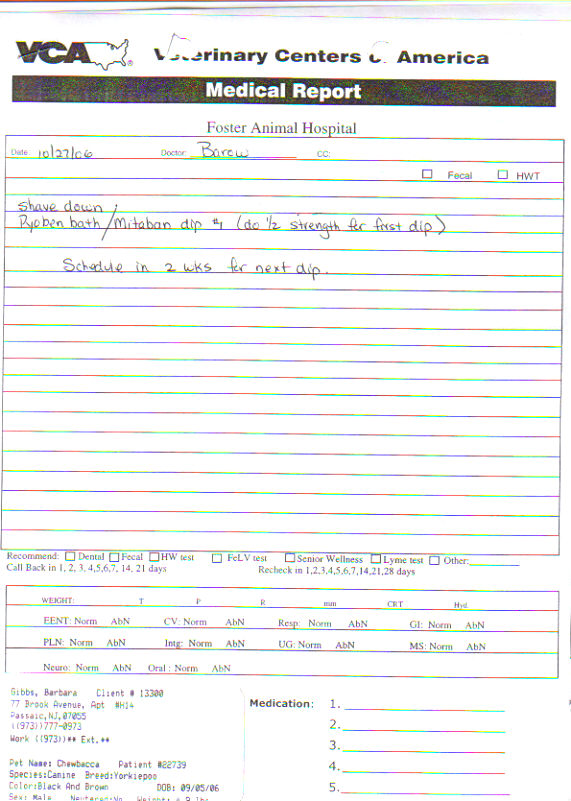 VCA® Veterinary Centers of America
Medical Report
Foster Animal Hospital
Date: 10/27/06 Doctor: CC:
Fecal HWT
Shave down ;
Pyoben bath/Mitaban dip #1 (do 1/2 strength for first dip)
Schedule in 2 wks for next dip.
Recommend: Dental Fecal HW test FeLV test Senior Wellness Lyme test Other:
Call Back in 1, 2, 3, 4,5,6,7, 14, 21 days Recheck in 1,2,3,4,5,6,7,14,21,28 days
WEIGHT: T P R mm CRT Hyd
EENT: Norm AbN CV: Norm AbN Resp: Norm AbN GI: Norm AbN
PLN: Norm AbN Intg: Norm AbN UG: Norm AbN MS: Norm AbN
Neuro: Norm AbN Oral : Norm AbN
Gibbs, Barbara Client # 13300
77 Brook Avenue, Apt #H14
Passaic,NJ,07055
((973))777-0973
Work ((973))** Ext.**
Pet Name: Chewbacca Patient #22739
Species:Canine Breed:Yorkiepoo
Color:Black And Brown DOB: 09/05/06
Sex: Male Neutered:No Weight: 9 lbs
Medication: 1.
2.
3.
4.
5.